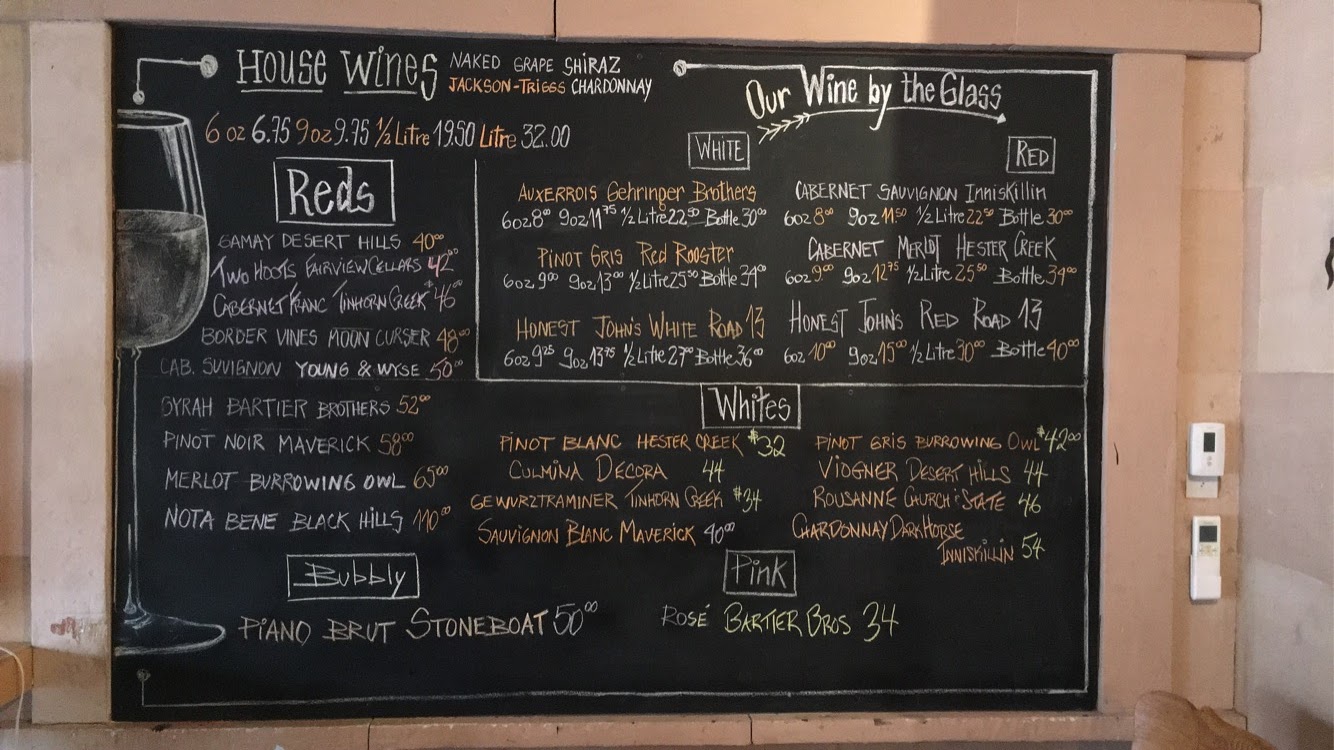 House Wines
NAKED GRAPE SHIRAZ
JACKSON-TRIGGS CHARDONNAY
6 oz 6.75 9oz 9.75 1/2 Litre 19.50 Litre 32.00
Reds
GAMAY DESERT HILLS 40⁰⁰
TWO HOOTS FAIRVIEW CELLARS 42⁰⁰
CABERNET FRANC TINHORN CREEK $46⁰⁰
BORDER VINES MOON CURSER 48⁰⁰
CAB. SUVIGNON YOUNG & WYSE 50⁰⁰
SYRAH BARTIER BROTHERS 52⁰⁰
PINOT NOIR MAVERICK 58⁰⁰
MERLOT BURROWING OWL 65⁰⁰
NOTA BENE BLACK HILLS 110⁰⁰
Our Wine by the Glass
WHITE
AUXERROIS Gehringer Brothers
6oz 8⁰⁰ 9oz 11⁷⁵ 1/2 Litre 22⁵⁰ Bottle 30⁰⁰
PINOT GRIS Red Rooster
6oz 9⁰⁰ 9oz 13⁰⁰ 1/2 Litre 25⁵⁰ Bottle 34⁰⁰
HONEST JOHN'S WHITE ROAD 13
6oz 9²⁵ 9oz 13⁷⁵ 1/2 Litre 27⁰⁰ Bottle 36⁰⁰
RED
CABERNET SAUVIGNON Inniskillin
6oz 8⁰⁰ 9oz 11⁵⁰ 1/2 Litre 22⁵⁰ Bottle 30⁰⁰
CABERNET MERLOT HESTER CREEK
6oz 9⁰⁰ 9oz 12⁷⁵ 1/2 Litre 25⁵⁰ Bottle 34⁰⁰
HONEST JOHN'S RED ROAD 13
6oz 10⁰⁰ 9oz 15⁰⁰ 1/2 Litre 30⁰⁰ Bottle 40⁰⁰
Whites
PINOT BLANC HESTER CREEK $32
CULMINA DECORA 44
GEWURZTRAMINER TINHORN CREEK $34
SAUVIGNON BLANC MAVERICK 40⁰⁰
PINOT GRIS BURROWING OWL $42⁰⁰
VIOGNER DESERT HILLS 44
ROUSANNE CHURCH & STATE 46
CHARDONNAY DARK HORSE
INNISKILLIN 54
Bubbly
PIANO BRUT STONEBOAT 50⁰⁰
Pink
ROSÉ BARTIER BROS 34